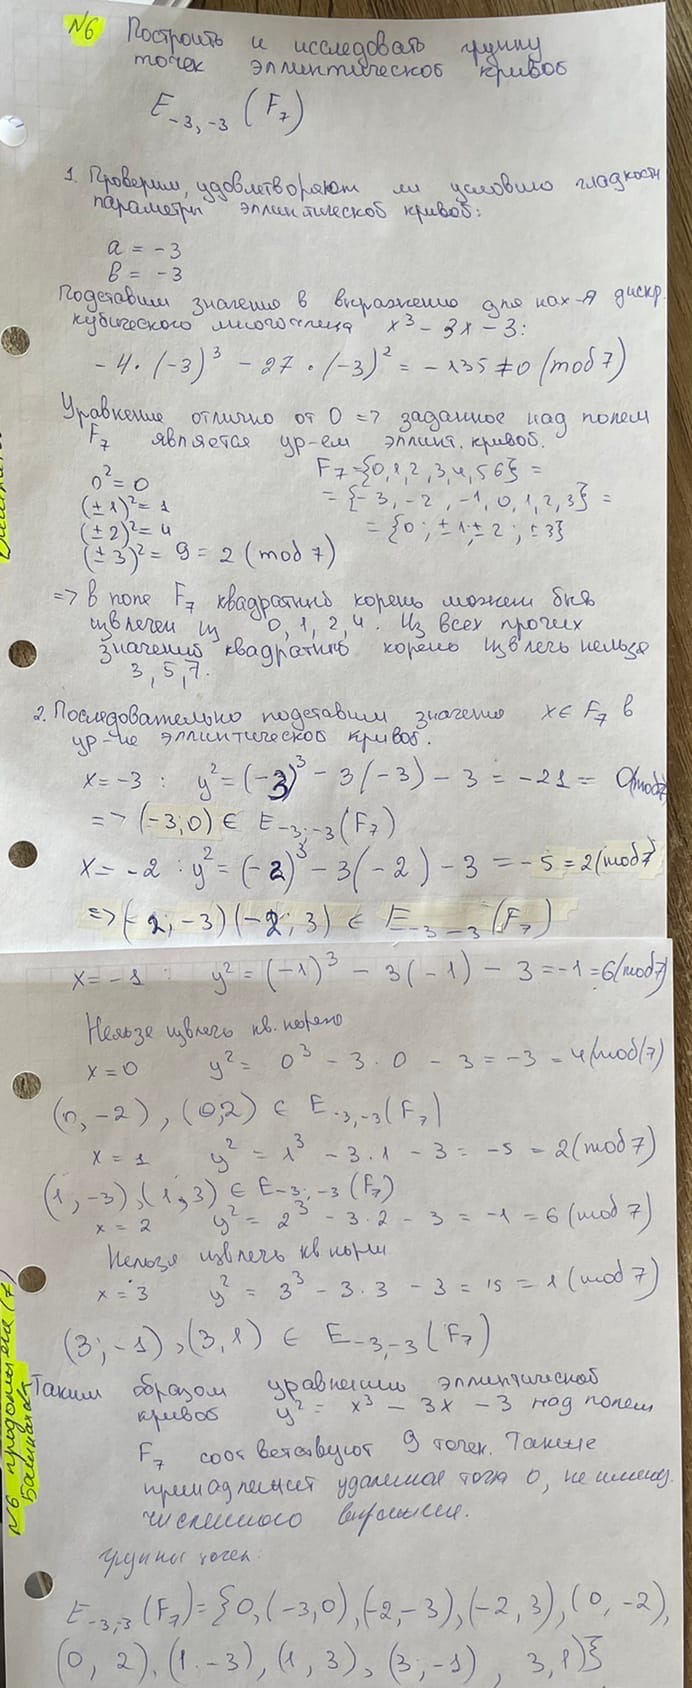 N6 Построить и исследовать группу
точек эллиптической кривой
E₋₃,₋₃ (F₇)
1. Проверим, удовлетворяют ли условию гладкости
параметры эллиптической кривой:
a = -3
b = -3
Подставим значения в выражение для нах-я дискр.
кубического многочлена x³ - 3x - 3:
- 4 · (-3)³ - 27 · (-3)² = - 135 ≠ 0 (mod 7)
Уравнение отлично от 0 => заданное над полем
F₇ является ур-ем эллипт. кривой.
0² = 0
(±1)² = 1
(±2)² = 4
(±3)² = 9 = 2 (mod 7)
F₇ = {0,1,2,3,4,5 6} =
= {-3, -2, -1, 0, 1, 2, 3} =
= {0; ±1; ±2; ±3}
=> в поле F₇ квадратный корень может быть
извлечен из 0, 1, 2, 4. Из всех прочих
значений квадратный корень извлечь нельзя
3, 5, 7.
2. Последовательно подставим значения x ∈ F₇ в
ур-ие эллиптической кривой.
x = -3 : y² = (-3)³ - 3(-3) - 3 = -21 = 0(mod7)
=> (-3; 0) ∈ E₋₃;₋₃ (F₇)
x = -2 : y² = (-2)³ - 3(-2) - 3 = -5 = 2(mod7)
=> (-2; -3) (-2; 3) ∈ E₋₃₋₃ (F₇)
x = -1 : y² = (-1)³ - 3(-1) - 3 = -1 = 6(mod7)
Нельзя извлечь кв. корень
x = 0 y² = 0³ - 3 · 0 - 3 = -3 = 4(mod(7)
(0, -2), (0,2) ∈ E₋₃,₋₃ (F₇)
x = 1 y² = 1³ - 3 · 1 - 3 = -5 = 2(mod 7)
(1, -3), (1, 3) ∈ E₋₃;₋₃ (F₇)
x = 2 y² = 2³ - 3 · 2 - 3 = -1 = 6 (mod 7)
Нельзя извлечь кв корни
x = 3 y² = 3³ - 3 · 3 - 3 = 15 = 1 (mod 7)
(3; -1), (3, 1) ∈ E₋₃,₋₃ (F₇)
N6 продолжение (7)
Таким образом уравнению эллиптической
кривой y² = x³ - 3x - 3 над полем
F₇ соответствуют 9 точек. Также
принадлежит удаленная точка 0, не имеющ.
численного выражения.
группы точек:
E₋₃,₋₃ (F₇) = {0, (-3, 0), (-2, -3), (-2, 3), (0, -2),
(0, 2), (1. -3), (1, 3), (3; -1), 3, 1)}